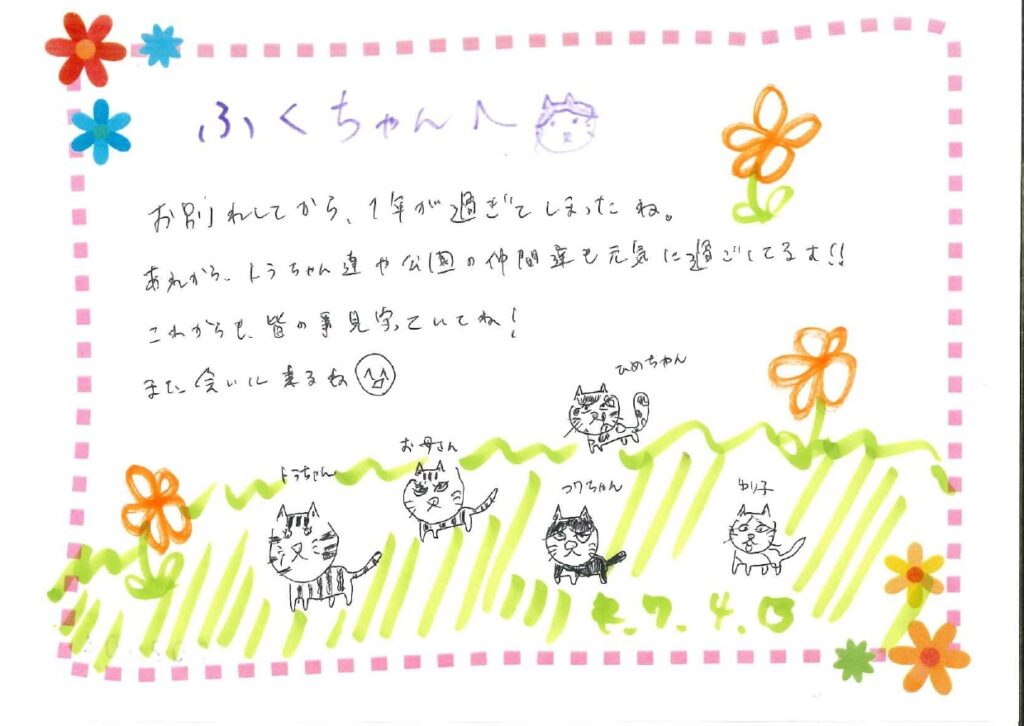 ふくちゃんへ
お別れしてから、1年が過ぎてしまったね。
あれから、トラちゃん達や公園の仲間達も元気に過ごしてるよ!!
これからも、皆の事見守っていてね!
また会いに来るね
ひめちゃん
お母さん
トラちゃん
コワちゃん
ゆり子
7.4.